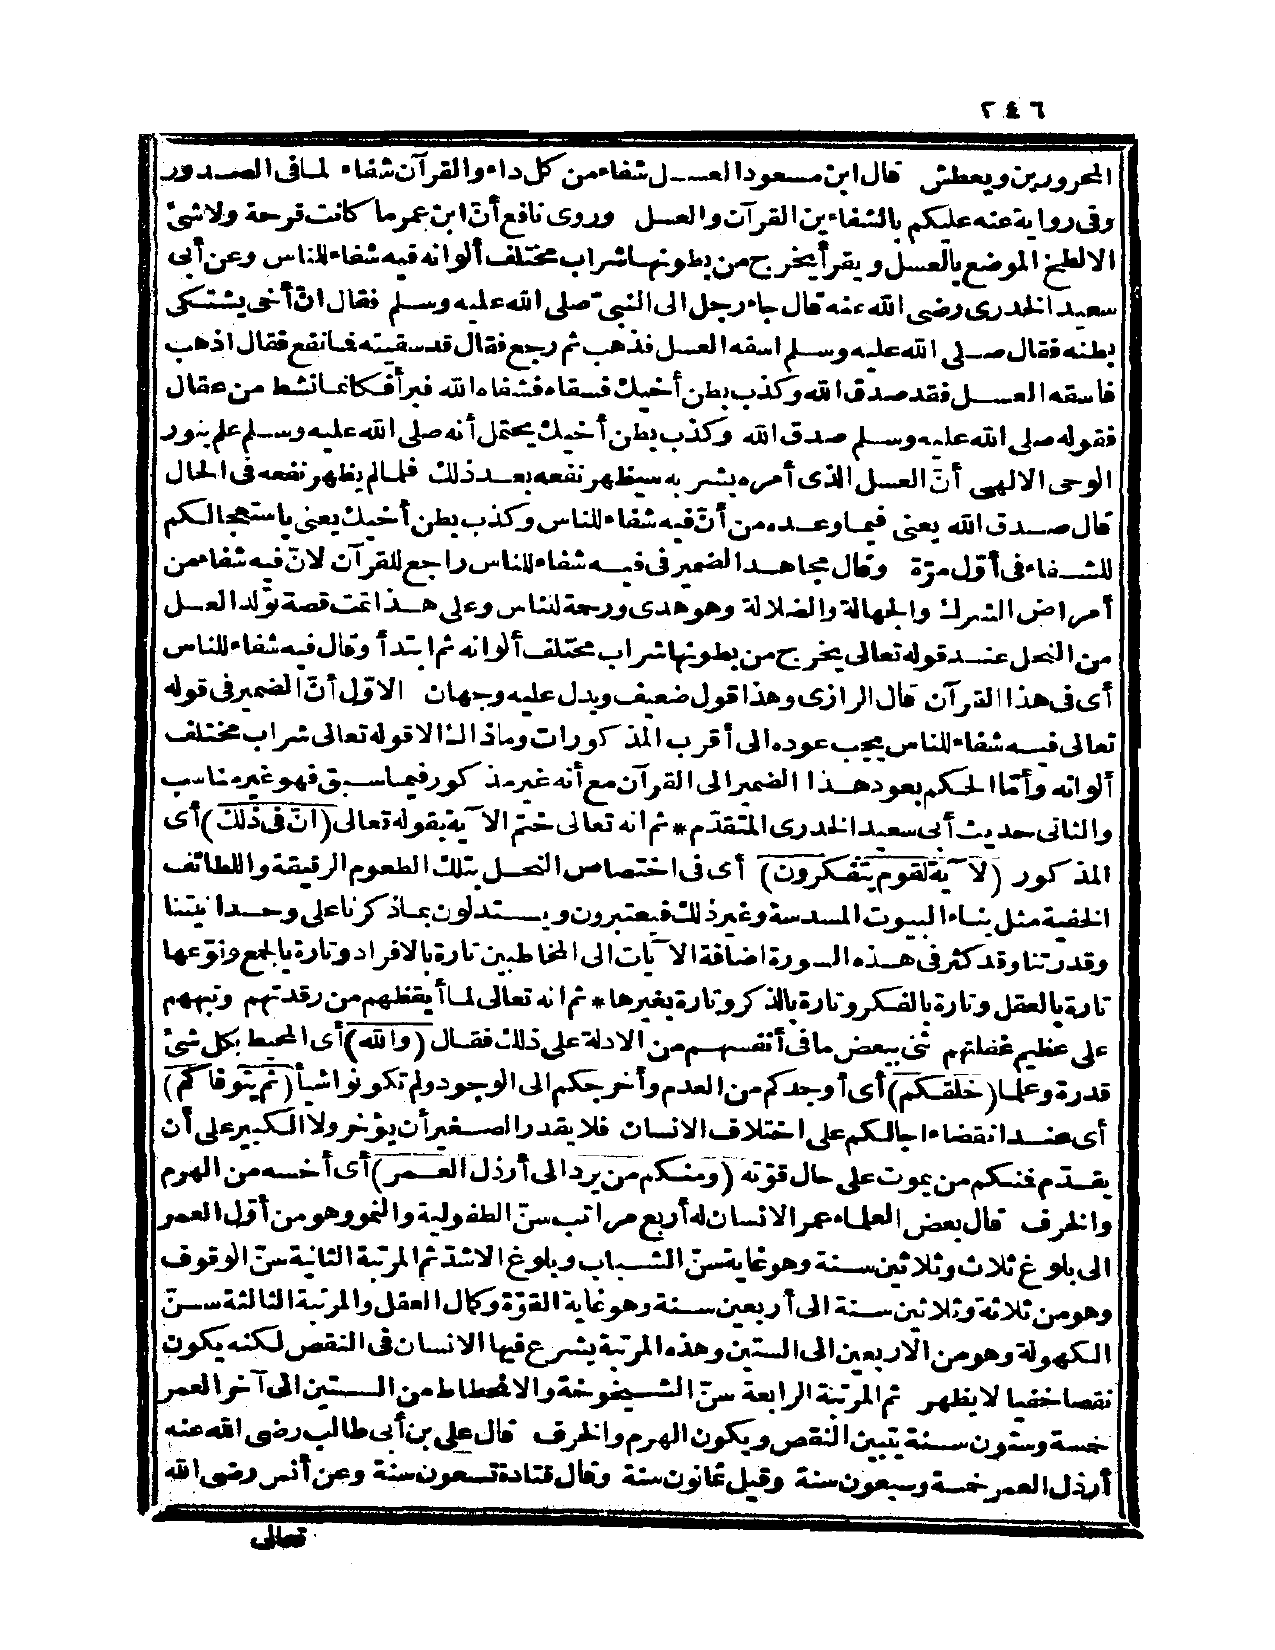 ٢٤٦
المحرورين ويعطش قال ابن مسعود العسل شفاء من كل داء والقرآن شفاء لما فى الصدور
وفى رواية عنه عليكم بالشفاءين القرآن والعسل وروى نافع أنّ ابن عمر ما كانت قرحة ولا شئ
الا لطخ الموضع بالعسل ويقرأ يخرج من بطونها شراب مختلف ألوانه فيه شفاء للناس وعن أبى
سعيد الخدرى رضى الله عنه قال جاء رجل الى النبىّ صلى الله عليه وسلم فقال انّ أخى يشتكى
بطنه فقال صلى الله عليه وسلم اسقه العسل فذهب ثم رجع فقال قد سقيته فما نفع فقال اذهب
فاسقه العسل فقد صدق الله وكذب بطن أخيك فسقاه فشفاه الله فبرأ فكا نما نشط من عقال
فقوله صلى الله عليه وسلم صدق الله وكذب بطن أخيك يحتمل أنه صلى الله عليه وسلم علم بنور
الوحى الالهى أنّ العسل الذى أمره بشربه سيظهر نفعه بعد ذلك فلما لم يظهر نفعه فى الحال
قال صدق الله يعنى فيما وعده من أنّ فيه شفاء للناس وكذب بطن أخيك يعنى باستعجالكم
للشفاء فى أوّل مرّة وقال مجاهد الضمير فى فيه شفاء للناس راجع للقرآن لانّ فيه شفاء من
أمراض الشرك والجهالة والضلالة وهو هدى ورحمة للناس وعلى هذا تمت قصة تولد العسل
من النحل عند قوله تعالى يخرج من بطونها شراب مختلف ألوانه ثم ابتدأ وقال فيه شفاء للناس
أى فى هذا القرآن قال الرازى وهذا قول ضعيف ويدل عليه وجهان الاوّل أنّ الضمير فى قوله
تعالى فيه شفاء للناس يجب عوده الى أقرب المذكورات وما ذاك الا قوله تعالى شراب مختلف
ألوانه وأمّا الحكم بعود هذا الضمير الى القرآن مع أنه غير مذكور فيما سبق فهو غير مناسب
والثانى حديث أبى سعيد الخدرى المتقدّم * ثم انه تعالى ختم الآية بقوله تعالى (انّ فى ذلك) أى
المذكور (لآية لقوم يتفكرون) أى فى اختصاص النحل بتلك الطعوم الرقيقة واللطائف
الخفية مثل بناء البيوت المسدسة وغير ذلك فيعتبرون ويستدلون بما ذكرنا على وحدانيتنا
وقدرتنا وقد كثر فى هذه السورة اضافة الآيات الى المخاطبين تارة بالافراد وتارة بالجمع ونوّعها
تارة بالعقل وتارة بالفكر وتارة بالذكر وتارة بغيرها * ثم انه تعالى لما أيقظهم من رقدتهم ونبههم
على عظيم غفلتهم ثنى ببعض ما فى أنفسهم من الادلة على ذلك فقال (والله) أى المحيط بكل شئ
قدرة وعلما (خلقكم) أى أوجدكم من العدم وأخرجكم الى الوجود ولم تكونوا شيأ (ثم يتوفاكم)
أى عند انقضاء اجالكم على اختلاف الانسان فلا يقدر الصغير أن يؤخر ولا الكبير على أن
يقدّم فمنكم من يموت على حال قوّته (ومنكم من يرد الى أرذل العمر) أى أخسه من الهرم
والخرف قال بعض العلماء عمر الانسان له أربع مراتب سنّ الطفولية والنمو وهو من أوّل العمر
الى بلوغ ثلاث وثلاثين سنة وهو غاية سنّ الشباب وبلوغ الاشدّ ثم المرتبة الثانية سنّ الوقوف
وهو من ثلاثة وثلاثين سنة الى أربعين سنة وهو غاية القوّة وكمال العقل والمرتبة الثالثة سنّ
الكهولة وهو من الاربعين الى الستين وهذه المرتبة يشرع فيها الانسان فى النقص لكنه يكون
نقصا خفيا لا يظهر ثم المرتبة الرابعة سنّ الشيخوخة والانحطاط من الستين الى آخر العمر
خمسة وستون سنة يتبين النقص ويكون الهرم والخرف قال علىّ بن أبى طالب رضى الله عنه
أرذل العمر خمسة وسبعون سنة وقيل ثمانون سنة وقال قتادة تسعون سنة وعن أنس رضى الله
تعالى